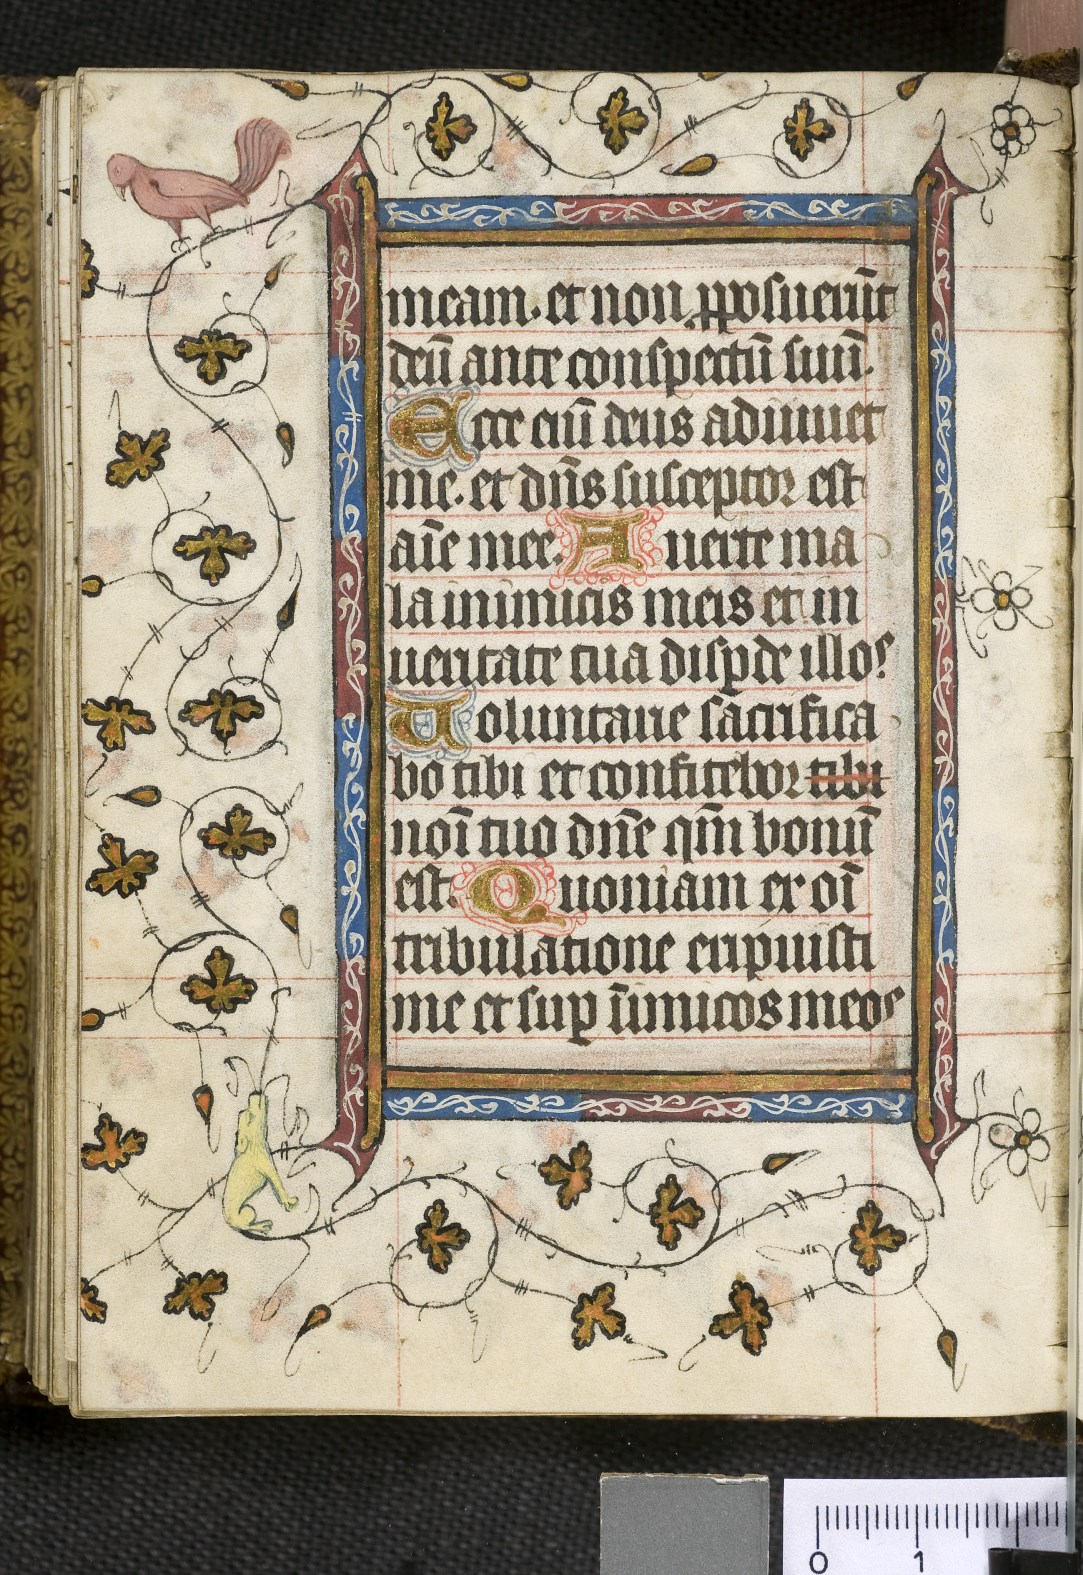 meam. et non ꝓposuerūt
deū ante conspectū suū.
Ecce eiū deus adiuuet
me. et dn̄s susceptor est
aīe mee. Auerte ma
la inimicis meis et in
ueritate tua disp̱de illoꝰ
Uoluntarie sacrifica
bo tibi et confitebor tibi
noī tuo dn̄e qm̄ bonū
est. Quoniam ex oī
tribulatione eripuisti
me et sup̱ īimicos meos
0 1